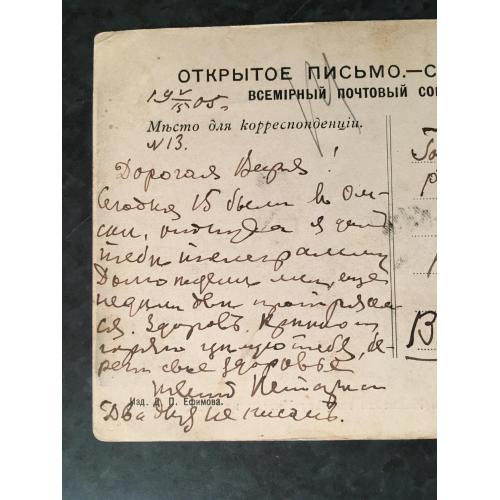 ОТКРЫТОЕ ПИСЬМО.—С
ВСЕМІРНЫЙ ПОЧТОВЫЙ СОЮ
19 V/15 05 г.
Мѣсто для корреспонденціи.
N13.
Дорогая Вѣра!
Сегодня 15 были в Ом-
ске, откуда я дал
тебе телеграмму
ещё
недели две протряса-
ся. Здоров. Крепко и
горячо целую тебя, бе-
реги свое здоровье
Два дня не писал.
Изд. Д. П. Ефимова.
В